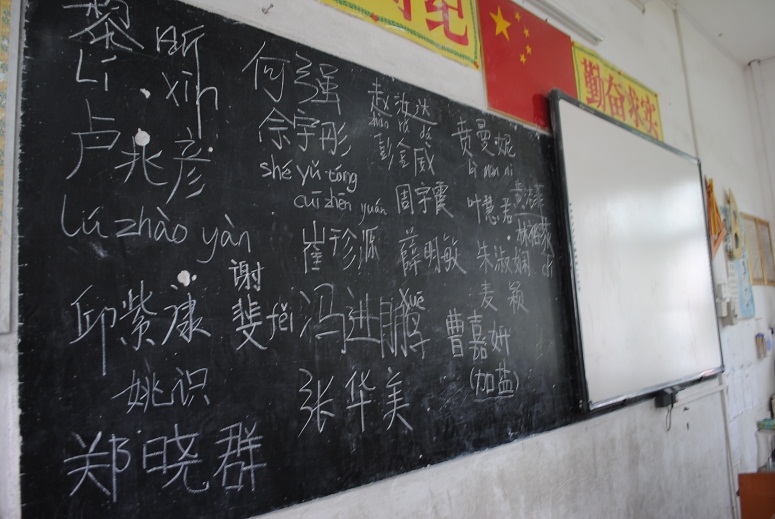 黎昕
Lí xīn
卢兆彦
lú zhào yàn
邱紫濂
谢斐 fěi
姚识
郑晓群
何强
佘宇彤
shé yǔ tóng
cuī zhēn yuán
崔珍源
冯进鹏
xué
张华美
彭鑫威
周宇震
薛明敏
贲曼妮
叶慧君
朱淑娴
麦颖
曹嘉妍
(加盐)
纪
勤奋求实